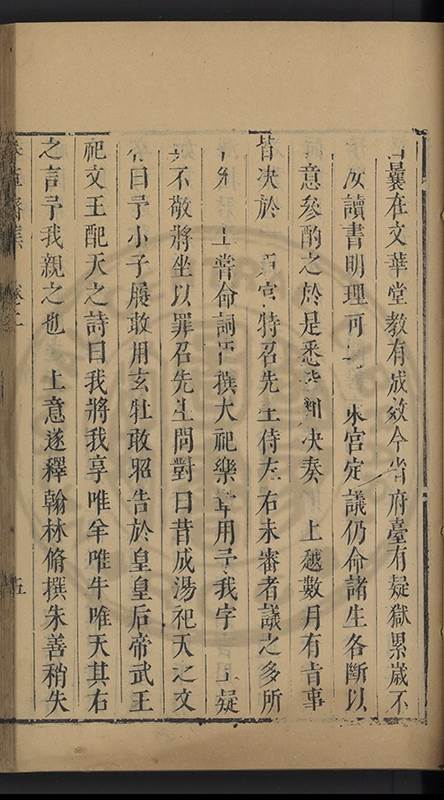 曩在文華堂教有成效今省府臺有疑獄累歲不
汝讀書明理可 東宮定議仍命諸生各斷以
意參酌之於是悉 決奏 上越數月有旨事
皆決於 東宮特召先生侍左右未審者議之多所
 上嘗命詞臣撰大祀樂章用予我字 上疑
其不敬將坐以罪召先生問對曰昔成湯祀天之文
有曰予小子履敢用玄牡敢昭告於皇皇后帝武王
祀文王配天之詩曰我將我享唯羊唯牛唯天其右
之言予我親之也 上意遂釋翰林脩撰朱善稍失
春草齋集 卷二 五